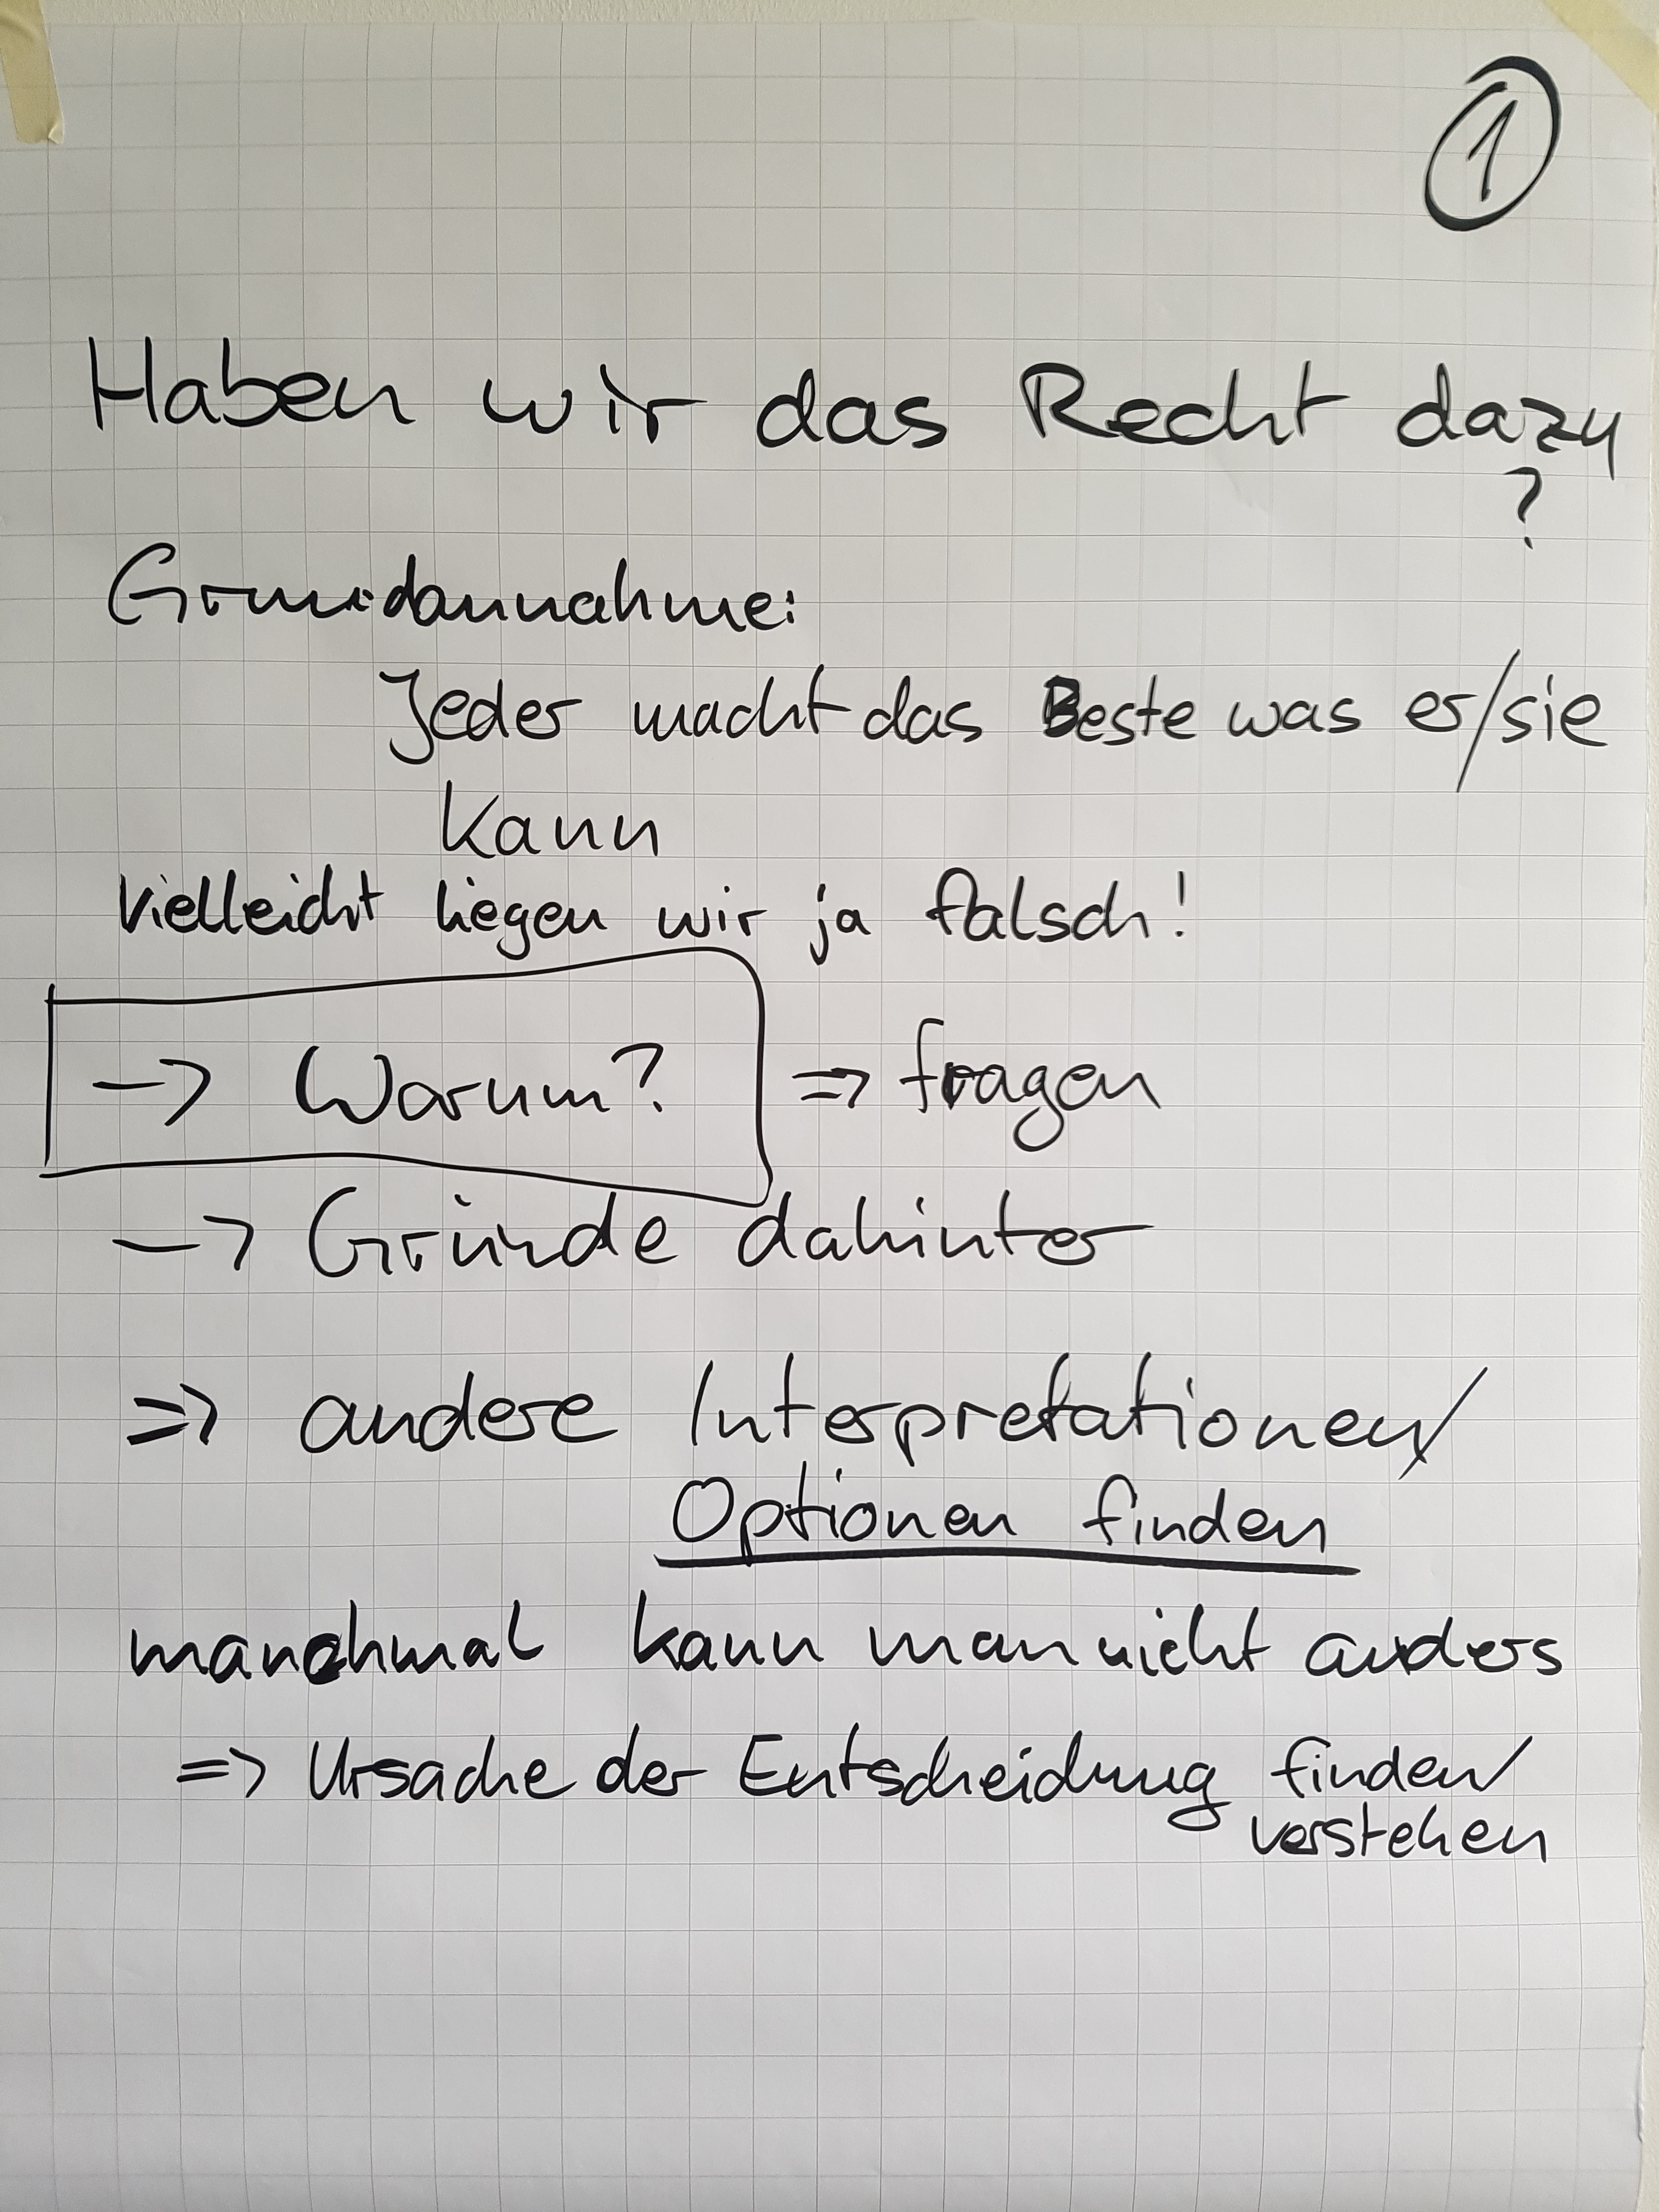 1
Haben wir das Recht dazu
?
Grundannahme:
Jeder macht das Beste was er/sie
kann
Vielleicht liegen wir ja falsch!
-> Warum? => fragen
-> Gründe dahinter
=> andere Interpretationen/
Optionen finden
manchmal kann man nicht anders
=> Ursache der Entscheidung finden/
verstehen